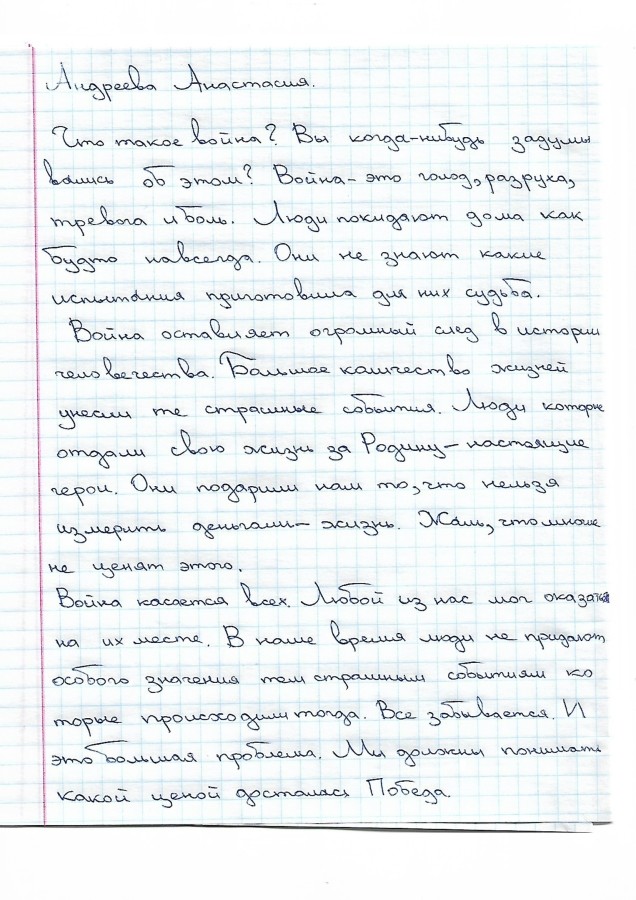 Андреева Анастасия.
Что такое война? Вы когда-нибудь задумы
вались об этом? Война - это голод, разруха,
тревога и боль. Люди покидают дома как
будто навсегда. Они не знают какие
испытания приготовила для них судьба.
Война оставляет огромный след в истории
человечества. Большое количество жизней
унесли те страшные события. Люди которые
отдали свою жизнь за Родину - настоящие
герои. Они подарили нам то, что нельзя
измерить деньгами - жизнь. Жаль, что многие
не ценят этого.
Война касается всех. Любой из нас мог оказаться
на их месте. В наше время люди не придают
особого значения тем страшным событиям ко
торые происходили тогда. Все забывается. И
это большая проблема. Мы должны понимать
какой ценой досталась Победа.